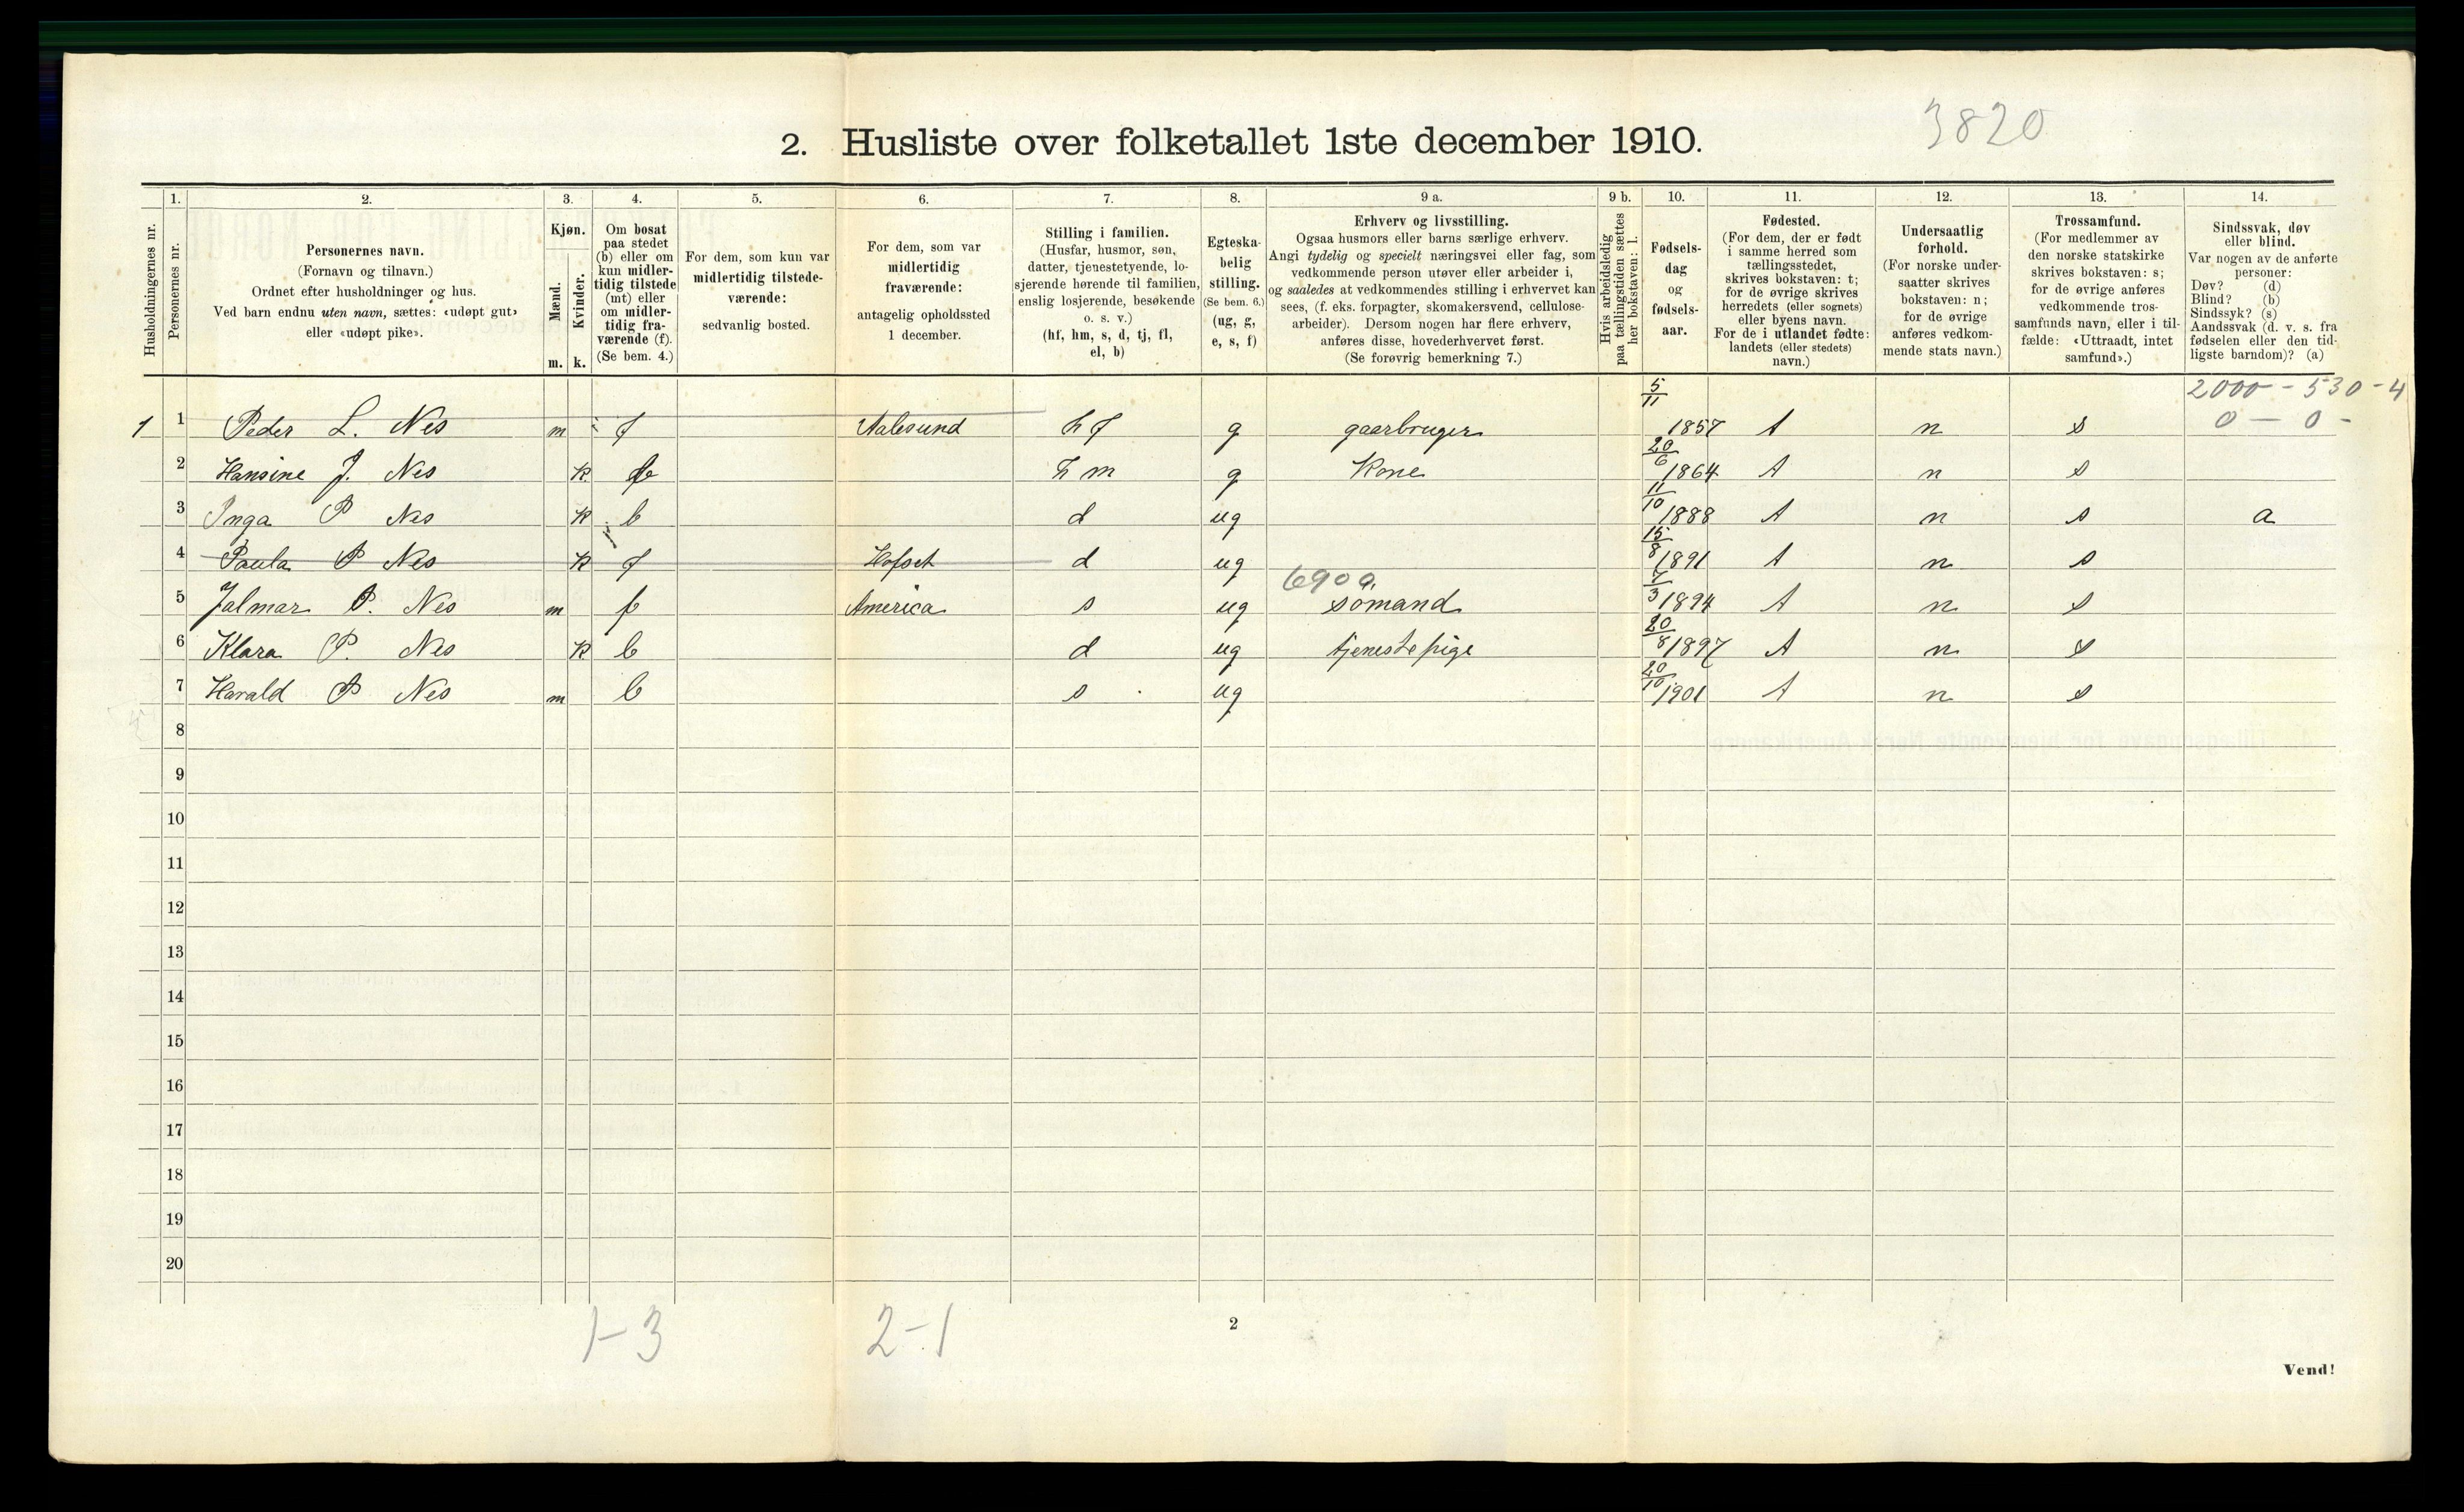 3820
2. Husliste over folketallet 1ste december 1910.
Husholdningernes nr.
1.
Personernes nr.
2.
Personernes navn.
(Fornavn og tilnavn.)
Ordnet efter husholdninger og hus.
Ved barn endnu uten navn, sættes: «udøpt gut»
eller «udøpt pike».
3.
Kjøn.
Mænd.
Kvinder.
m. k.
4.
Om bosat
paa stedet
(b) eller om
kun midler-
tidig tilstede
(mt) eller
om midler-
tidig fra-
værende (f).
(Se bem. 4.)
5.
For dem, som kun var
midlertidig tilstede-
værende:
sedvanlig bosted.
6.
For dem, som var
midlertidig
fraværende:
antagelig opholdssted
1 december.
7.
Stilling i familien.
(Husfar, husmor, søn,
datter, tjenestetyende, lo-
sjerende hørende til familien,
enslig losjerende, besøkende
o. s. v.)
(hf, hm, s, d, tj, fl,
el, b)
8.
Egteska-
belig
stilling.
(Se bem. 6.)
(ug, g,
e, s, f)
9 a.
Erhverv og livsstilling.
Ogsaa husmors eller barns særlige erhverv.
Angi tydelig og specielt næringsvei eller fag, som
vedkommende person utøver eller arbeider i,
og saaledes at vedkommendes stilling i erhvervet kan
sees, (f. eks. forpagter, skomakersvend, cellulose-
arbeider). Dersom nogen har flere erhverv,
anføres disse, hovederhvervet først.
(Se forøvrig bemerkning 7.)
9 b.
Hvis arbeidsledig
paa tællingstiden sættes
her bokstaven: l.
10.
Fødsels-
dag
og
fødsels-
aar.
11.
Fødested.
(For dem, der er født
i samme herred som
tællingsstedet,
skrives bokstaven: t;
for de øvrige skrives
herredets (eller sognets)
eller byens navn.
For de i utlandet fødte:
landets (eller stedets)
navn.)
12.
Undersaatlig
forhold.
(For norske under-
saatter skrives
bokstaven: n;
for de øvrige
anføres vedkom-
mende stats navn.)
13.
Trossamfund.
(For medlemmer av
den norske statskirke
skrives bokstaven: s;
for de øvrige anføres
vedkommende tros-
samfunds navn, eller i til-
fælde: «Uttraadt, intet
samfund».)
14.
Sindssvak, døv
eller blind.
Var nogen av de anførte
personer:
Døv? (d)
Blind? (b)
Sindssyk? (s)
Aandssvak (d. v. s. fra
fødselen eller den tid-
ligste barndom)? (a)
2000 - 530 - 4
0 - 0 -
1 1 Peder L. Nes m f Aalesund hf g gaarbruger 5/11 1857 t n s
2 Hansine J. Nes k b hm g Kone 20/6 1864 t n s
3 Inga P Nes k b d ug 11/10 1888 t n s a
4 Paula P Nes k f Hofset d ug 15/8 1891 t n s
6900
5 Jalmar P. Nes m f America s ug sömand 7/3 1894 t n s
6 Klara P. Nes k b d ug tjenestepige 20/8 1897 t n s
7 Harald P Nes m b s ug 20/10 1901 t n s
8
9
10
11
12
13
14
15
16
17
18
19
20
1-3 2-1
2
Vend!